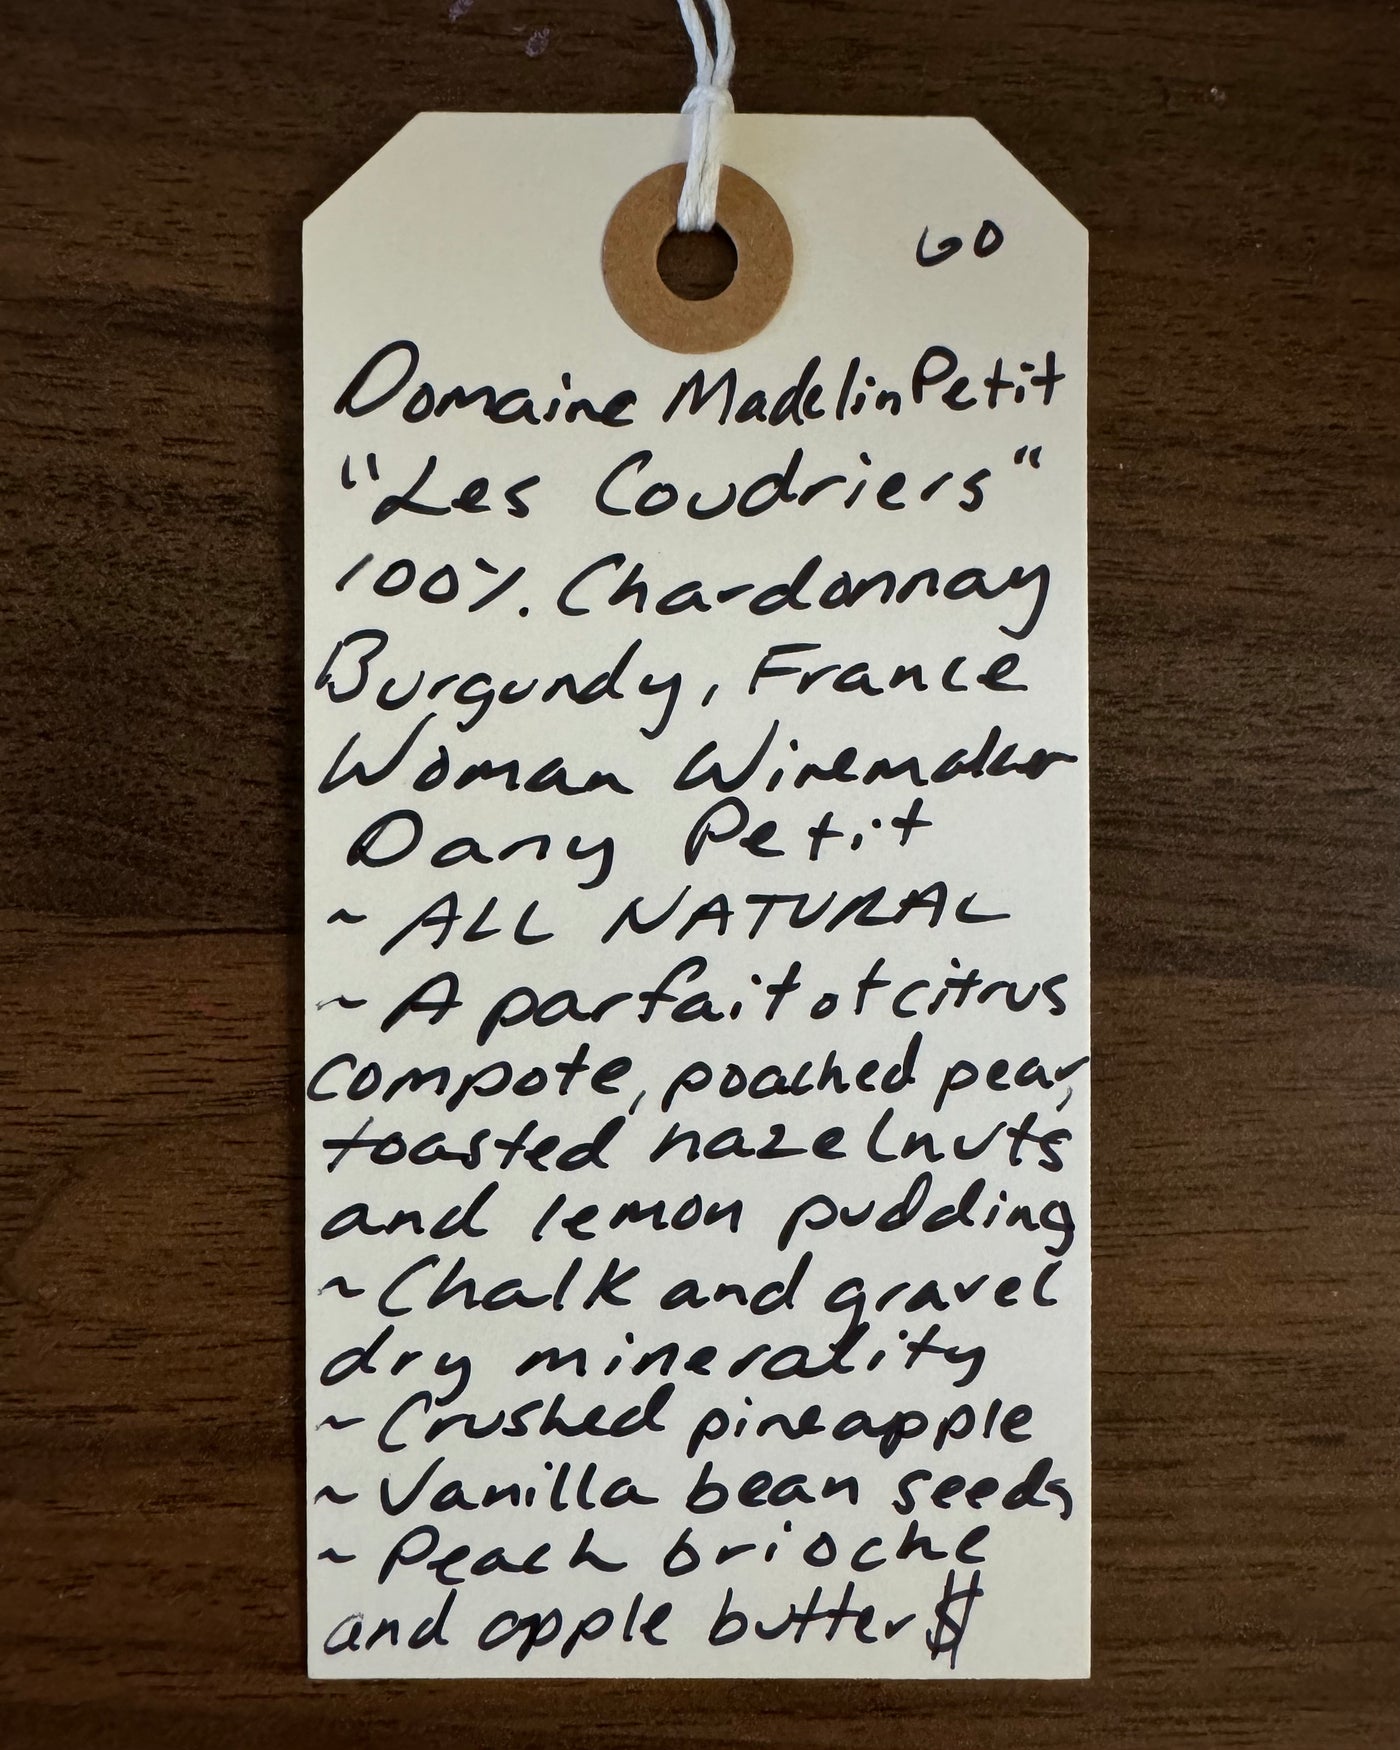 60
Domaine Madelin Petit
"Les Coudriers"
100% Chardonnay
Burgundy, France
Woman Winemaker
Dany Petit
~ ALL NATURAL
~ A parfait of citrus
compote, poached pear,
toasted hazelnuts
and lemon pudding
~ Chalk and gravel
dry minerality
~ Crushed pineapple
~ Vanilla bean seeds
~ Peach brioche
and apple butter $